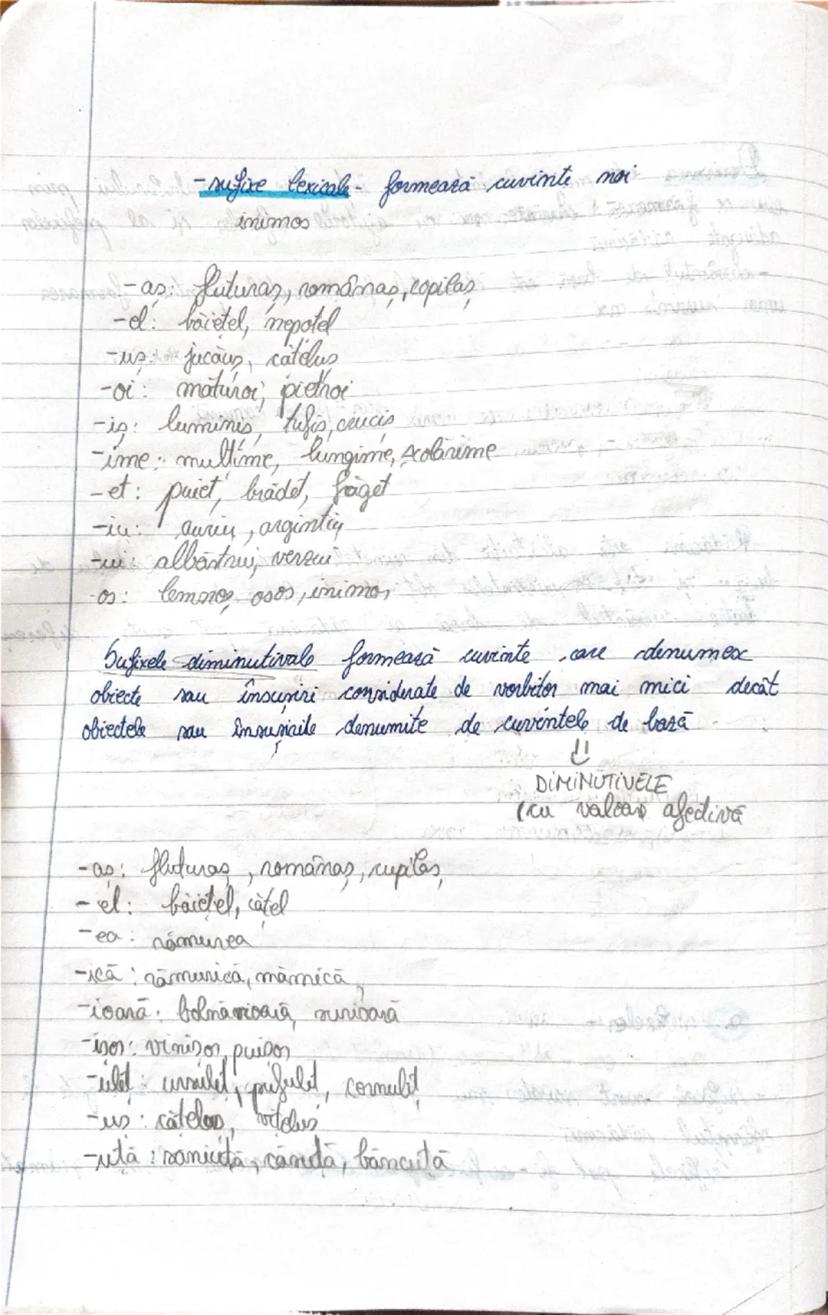 -sufixe lexicale- formează cuvinte noi
inimos
-aș: fluturaș, românaș, copilaș
-el: băiețel, nepoțel
-uș: jucăuș, cățeluș
-oi: măturoi, pietroi
-iș: luminiș, tufiș, cruciș
-ime: mulțime, lungime, școlărime
-et: puiet, brădet, făget
-iu: auriu, argintiu
-ui: albăstrui, verzui
-os: lemnos, osos, inimos
Sufixele diminutivale formează cuvinte care denumesc
obiecte sau însușiri considerate de vorbitor mai mici decât
obiectele sau însușirile denumite de cuvintele de bază
DIMINUTIVELE
(cu valoare afectivă
-aș: fluturaș, românaș, cupilaș,
-el: băiețel, cățel
-ea: rămurea
-ică: rămurică, mămică,
-ioară: bolnăvioară, surioară
-ișor: vinișor, puișor
-uleț: ursuleț, pufuleț, cornuleț
-uș: cățeluș, vițeluș
-uță: săniuță, cănuță, băncuță